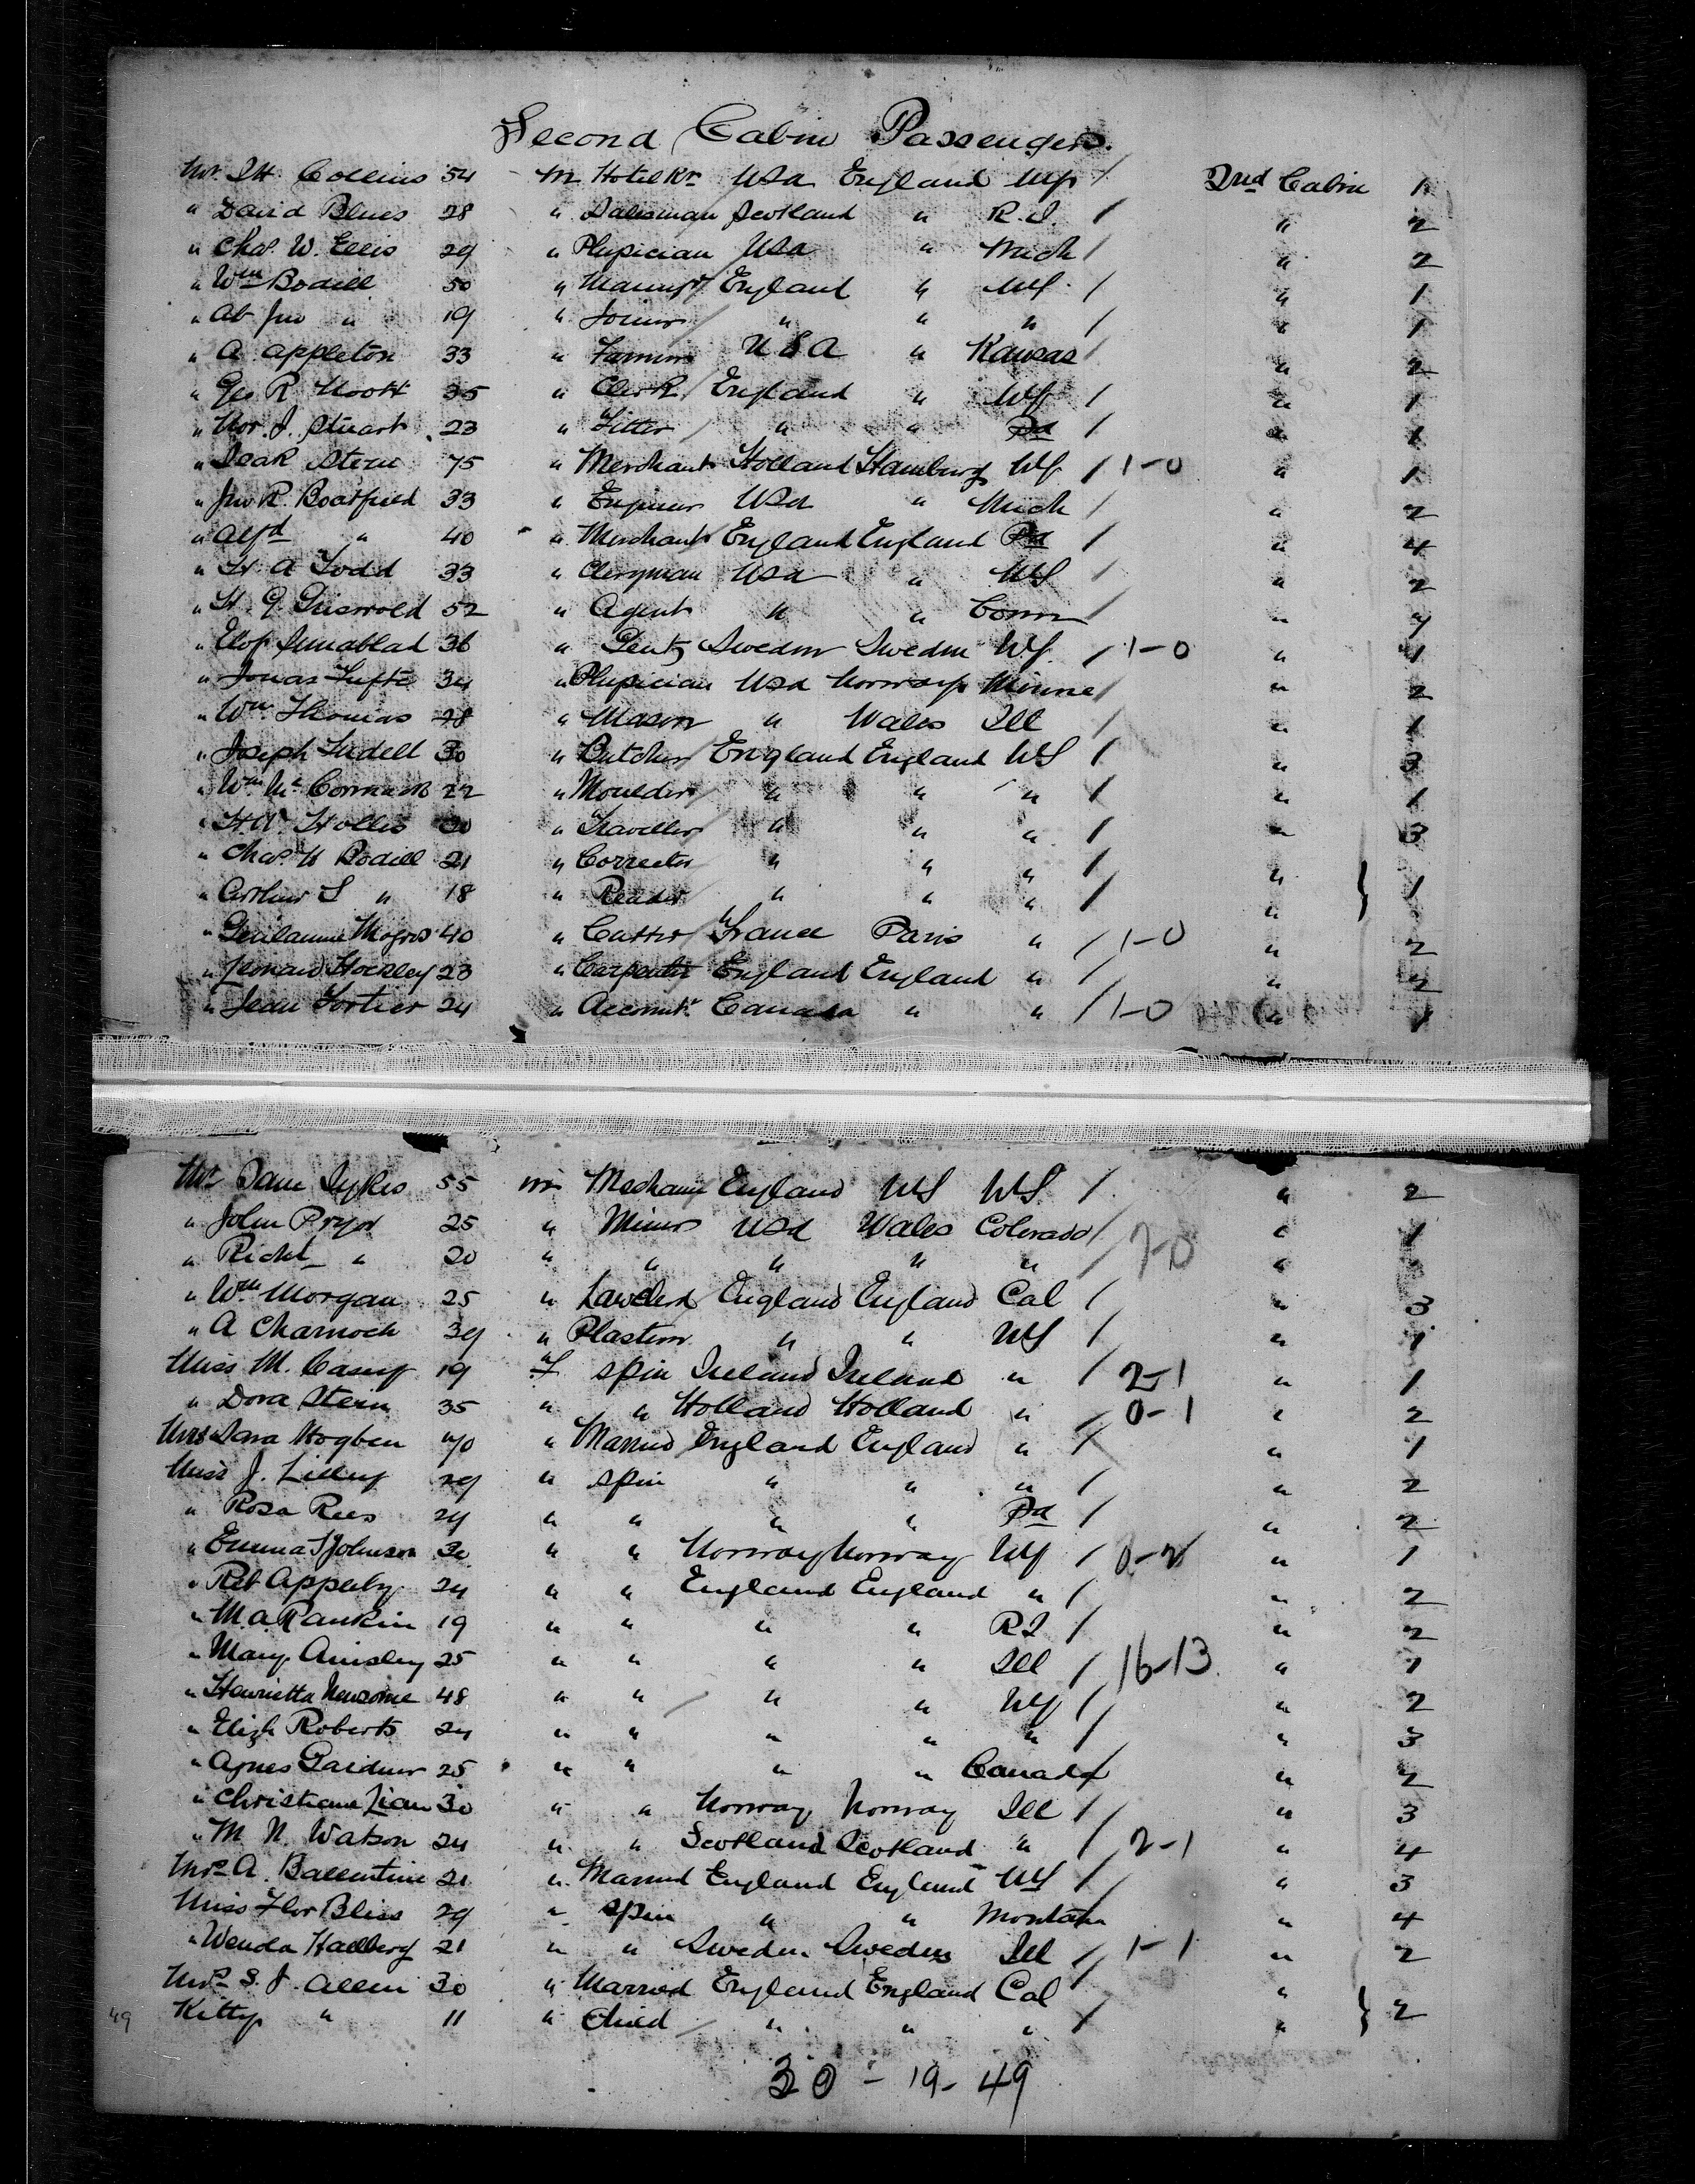 Second Cabin Passengers.
Mr. J H. Collins 54 m Hotel Kr USA England NY / 2nd Cabin 1
" David Blues 28 " Salesman Scotland " R.I. / " 2
" Chas. W. Ellis 29 " Physician USA " Mich / " 2
" Wm Bodill 50 " England " NY. / " 1
" " 19 " Joiner / " " " / " 1
" A Appleton 33 " Farmer USA " Kansas / " 2
" Geo R 35 " Clerk / England " NY / " 1
" J. Stuart 23 " Fitter / " " Pa / " 1
" Isak Stern 75 " Merchant Holland Hamburg NY / 1-0 " 1
" Jno R. Boatfield 33 " Engineer USA " Mich / " 2
" Alfd " 40 " Merchant / England England Pa / " 4
" H. A Todd 33 " Clergyman USA " NY / " 2
" H. G. Griswold 52 " Agent " " Conn / "
" 36 " Gent Sweden Sweden NY. / 1-0 " 1
" Jonas 34 " Physician USA Norway Minne / " 2
" Wm. Thomas 28 " Mason " Wales Ill / " 1
" Joseph 30 " Butcher / England England NY / " 3
" Wm Mc Cormack 22 " Moulder / " " " / " 1
" H.W. Hollis 30 " Traveller / " " " / " 3
" Chas. H Bodill 21 " Corrector " " " / " } 1
" Arthur S " 18 " Reader / " " " / "
" 40 " Cutter / France Paris " / 1-0 " 2
" Leonard Hockley 23 " Carpenter / England England " / " 2
" Jean Fortier 24 " Accountt. Canada " " / 1-0 " 1
Mr Sam Sykes 55 m Mechanic / England NY NY / " 2
" John Pryor 25 " Miner USA Wales Colorado / " 1
" Richd " 20 " " " " " / 2-0 "
" Wm Morgan 25 " England England Cal / " 3
" A Charnock 39 " Plasterer " " NY / " 1
Miss M. Casey 19 f spin Ireland Ireland " / 2-1 " 1
" Dora Stern 35 " " Holland Holland " / 0-1 " 2
Mrs Sara Hogben 70 " Married England England " / " 1
Miss J. Lilley 29 " spin " " " / " 2
" Rosa Rees 24 " " " " Pa / " 2
" Emma S Johnson 30 " " Norway Norway NY / 0-2 " 1
" Ret Appleby 24 " " England England " / " 2
" M.A. Rankin 19 " " " " RI / " 2
" Mary Ainsley 25 " " " " Ill / 16-13 " 1
" Henrietta Newsome 48 " " / " " NY / " 2
" Eliz Roberts 24 " " " " " / " 3
" Agnes Gardner 25 " " " " Canada / " 2
" Christiane Lian 30 " " Norway Norway Ill / " 3
" M. N. Watson 24 " " Scotland Scotland " / 2-1 " 4
Mrs A. Ballentine 21 " Married England England NY / " 3
Miss Flor Bliss 29 " spin " " Montana " 4
" Wenda Hallberg 21 " " Sweden Sweden Ill / 1-1 " 2
Mrs S. J. Allen 30 " Married England England Cal / " } 2
49 Kitty " 11 " Child / " " " / "
30 - 19 - 49